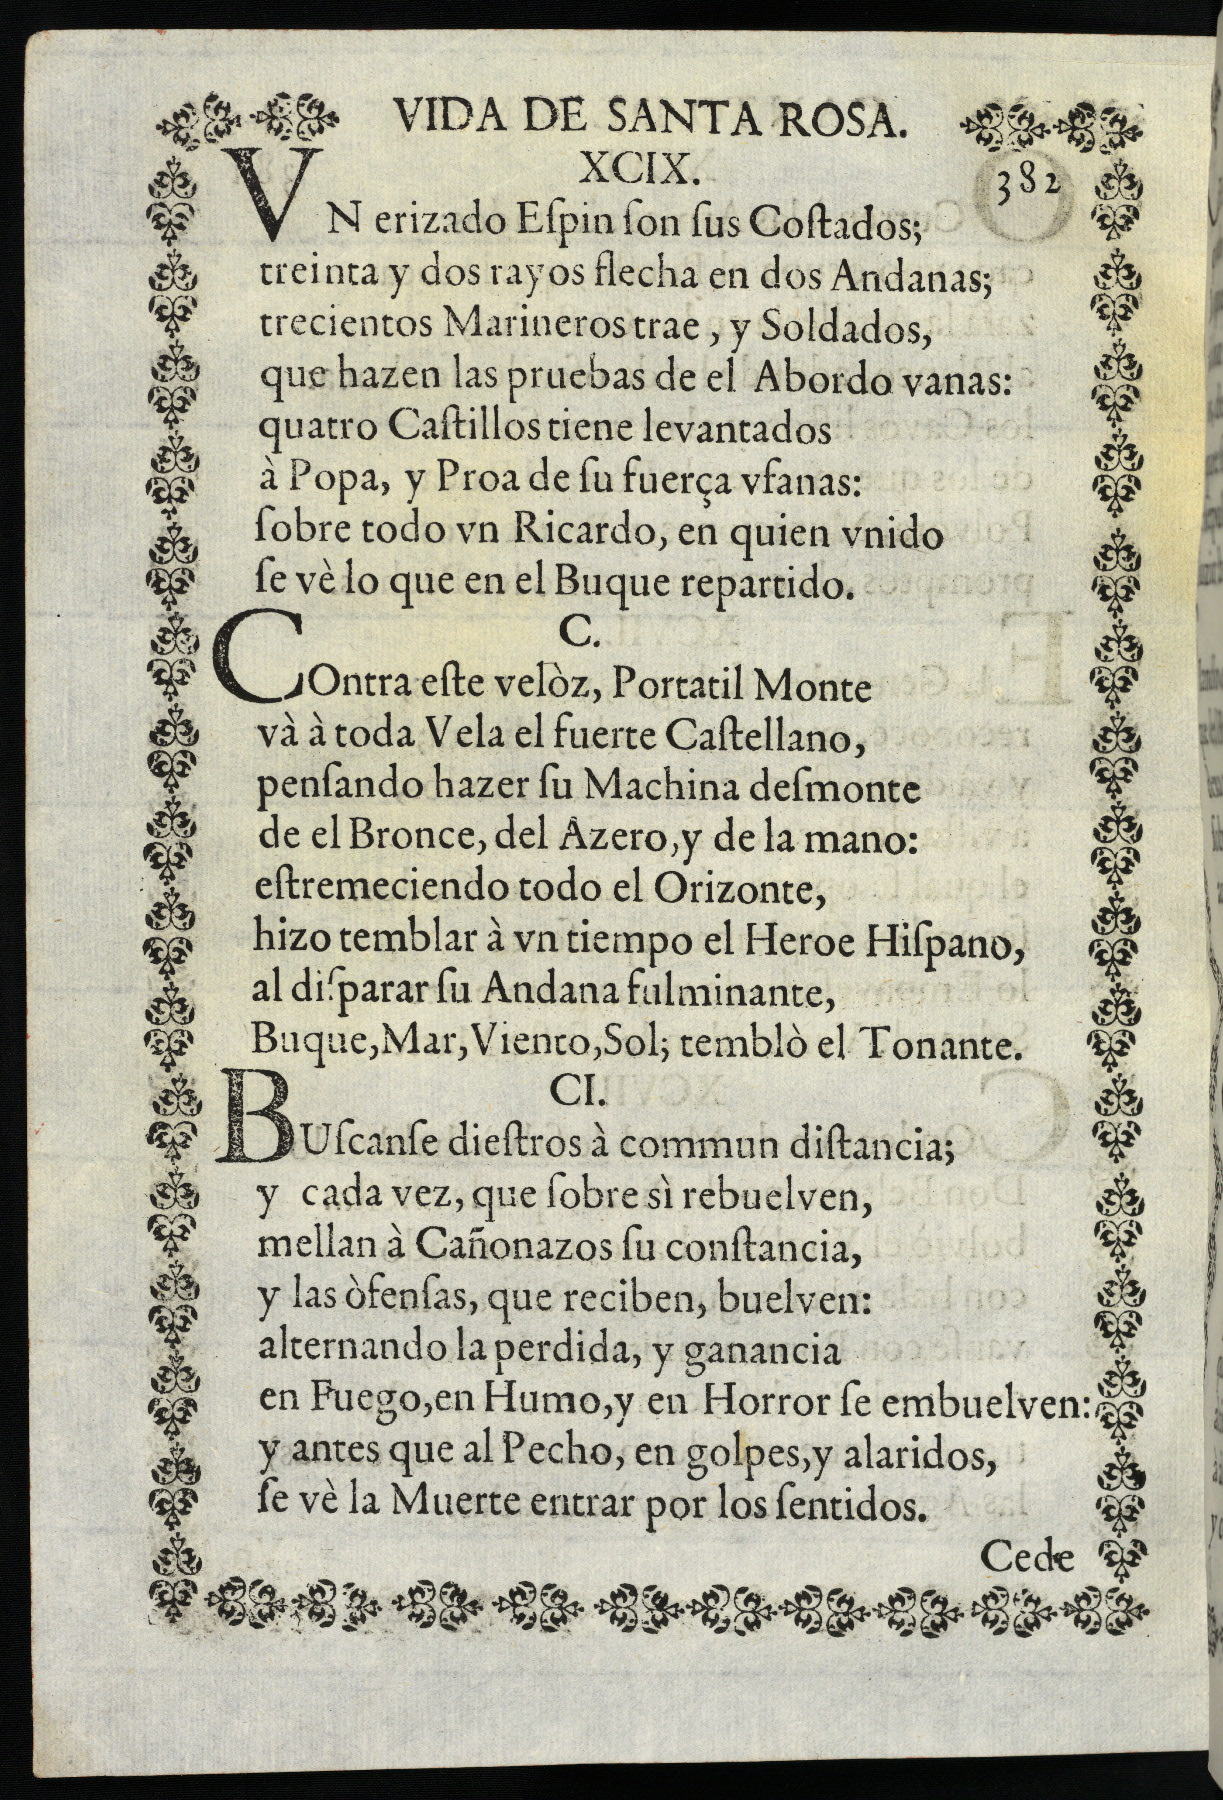 VIDA DE SANTA ROSA.
XCIX.
382
VN erizado Eſpin ſon ſus Coſtados;
treinta y dos rayos flecha en dos Andanas;
trecientos Marineros trae, y Soldados,
que hazen las pruebas de el Abordo vanas:
quatro Caſtillos tiene levantados
à Popa, y Proa de ſu fuerça vfanas:
ſobre todo vn Ricardo, en quien vnido
ſe vè lo que en el Buque repartido.
C.
COntra eſte velòz, Portatil Monte
và à toda Vela el fuerte Caſtellano,
penſando hazer ſu Machina deſmonte
de el Bronce, del Azero, y de la mano:
eſtremeciendo todo el Orizonte,
hizo temblar à vn tiempo el Heroe Hiſpano,
al diſparar ſu Andana fulminante,
Buque, Mar, Viento, Sol; temblò el Tonante.
CI.
BUſcanſe dieſtros à commun diſtancia;
y cada vez, que ſobre sì rebuelven,
mellan à Cañonazos ſu conſtancia,
y las òfenſas, que reciben, buelven:
alternando la perdida, y ganancia
en Fuego, en Humo, y en Horror ſe embuelven:
y antes que al Pecho, en golpes, y alaridos,
ſe vè la Muerte entrar por los ſentidos.
Cede